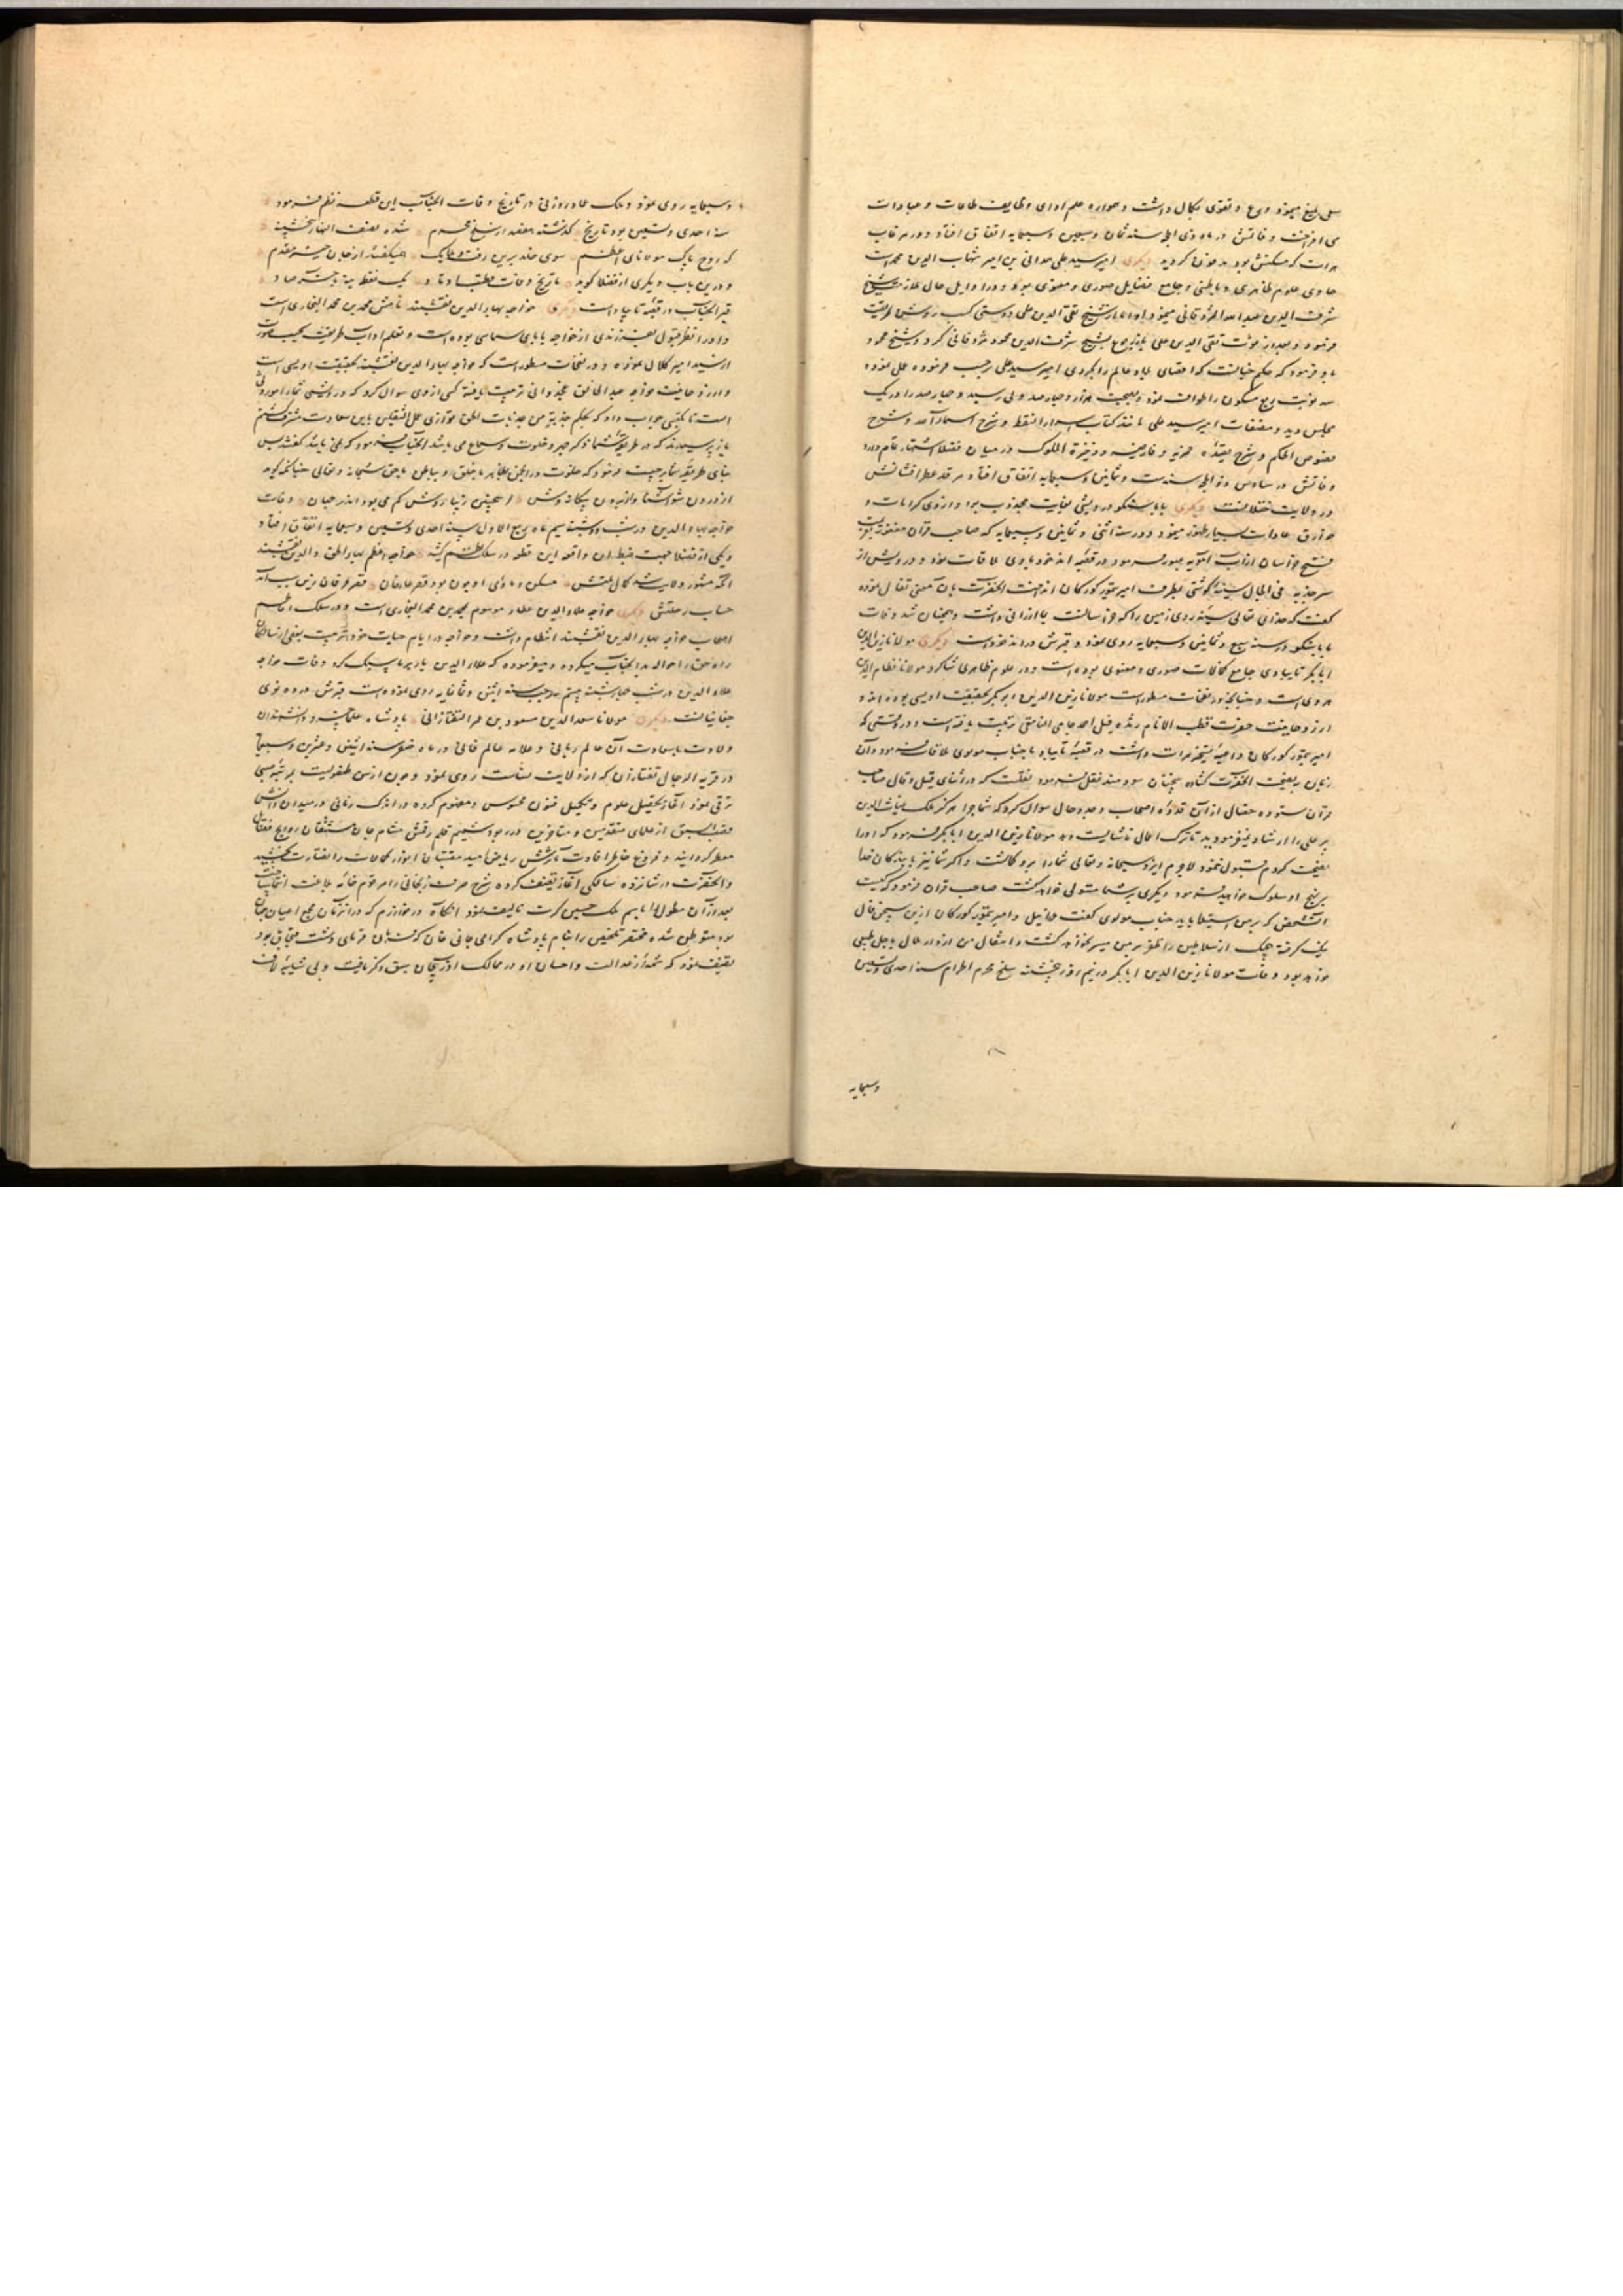 سعی بلیغ مینمود و ورع و تقوی بکمال داشت و همواره علم ادای وظایف طاعات و عبادات
می افراخت و فاتش در ماه ذی الحجه سنه ثمان و سبعین و سبعمایه اتفاق افتاد و در
هرات که مسکنش بود مدفون گردید دیگری امیر سید علی همدانی بن امیر شهاب الدین محمد است
حاوی علوم ظاهری و باطنی و جامع فضایل صوری و معنوی بود و در اوایل حال ملازمت شیخ
شرف الدین محمود بن عبد الله المزدقانی مینمود اما از شیخ تقی الدین علی دوستی کسب روش طریقت
فرمود و بعد از فوت تقی الدین علی باز رجوع بشیخ شرف الدین محمود مزدقانی کرد و شیخ محمود
باو فرمود که حکم چنانست که اقصای بلاد عالم را بگردی امیر سید علی بموجب فرموده عمل نموده
سه نوبت ربع مسکون را طواف نمود و بصحبت هزار و چهار صد ولی رسید و چهار صد را در یک
مجلس دید و مصنفات امیر سید علی مانند کتاب اسرار النقطه و شرح اسماء الله و شرح
فصوص الحکم و شرح قصیده خمریه فارضیه و ذخیرة الملوک در میان فضلا اشتهار تمام دارد
وفاتش در سادس ذی الحجه سنه ست و ثمانین و سبعمایه اتفاق افتاد و مرقد عطر افشانش
در ولایت ختلانست دیگری بابا سنکو درویشی بغایت مجذوب بود و از وی کرامات و
خوارق عادات بسیار ظهور مینمود و در سنه اثنی و ثمانین و سبعمایه که صاحب قران مغفور بعزیمت
فتح خراسان از آب آمویه عبور فرمود در قصبه اندخود با وی ملاقات نمود و درویش از
سر جذبه فی الحال سینه گوشتی بطرف امیر تیمور کورکان انداخت آنحضرت بآن معنی تفال نموده
گفت که خدای تعالی سینه روی زمین را که خراسانست بما ارزانی داشت و همچنان شد وفات
بابا سنکو در سنه سبع و ثمانین و سبعمایه روی نمود و قبرش در اندخود است دیگری مولانا زین الدین
ابابکر تایبادی جامع کمالات صوری و معنوی بوده است و در علوم ظاهری شاگرد مولانا نظام الدین
هروی است و چنانچه در نفحات مسطور است مولانا زین الدین ابو بکر بحقیقت اویسی بوده اند و
از روحانیت حضرت قطب الانام ژنده فیل احمد جامی النامقی تربیت یافته است و در وقتی که
امیر تیمور کورکان داعیه تسخیر هرات داشت در قصبه تایباد با جناب مولوی ملاقات فرمود و آن
زمان بنصیحت آنحضرت گشاده سخنان سودمند نقل فرمود نقلست که در اثنای قیل و قال صاحب
قران ستوده خصال از آن قدوه اصحاب وجد و حال سوال کرد که شما چرا هرگز ملک غیاث الدین
پیر علی را ارشاد ننمودید تا ترک اعمال ناشایست دهد مولانا زین الدین ابابکر فرمود که او را
نصیحت کردم قبول ننمود لاجرم ایزد سبحانه و تعالی شما را برو گماشت و اگر شما نیز با بندگان خدا
بر نهج او سلوک خواهید فرمود دیگری بر شما مستولی خواهد گشت صاحب قران فرمود که کیست
آن شخص که بر من استیلا یابد جناب مولوی گفت عزرائیل و امیر تیمور کورکان ازین سخن فال
نیک گرفته هیچیک از سلاطین را ظفر بر من میسر نخواهد گشت و انتقال من از دار ملال باجل طبیعی
خواهد بود وفات مولانا زین الدین ابابکر در نیم روز پنجشنبه سلخ محرم الحرام سنه احدی و تسعین
وسبعمایه
وسبعمایه روی نمود و ملک عماد روزنی در تاریخ وفات آنجناب این قطعه نظم فرمود
سنه احدی و تسعین بود تاریخ گذشته هفصد از سلخ محرم شده نصف النهار پنجشنبه
که روح پاک مولانای اعظم سوی خلد برین رفت و ملایک همیگفتند از جان خیر مقدم
و درین باب دیگری از فضلا گوید تاریخ وفات قطب اوتاد یک نقطه بنه بر آخر صاد
قبر آنجناب در قصبه تایباد است دیگری خواجه بهاء الدین نقشبند نامش محمد بن محمد البخاری است
و او را نظر قبول بفرزندی از خواجه بابای سماسی بوده است و تعلم آداب طریقت بحسب صورت
از سید امیر کلال نموده و در نفحات مسطور است که خواجه بهاء الدین نقشبند بحقیقت اویسی است
و از روحانیت خواجه عبد الخالق غجدوانی تربیت یافته کسی از وی سوال کرد که درویشی شما را موروثی
است تا مکتسبی جواب داد که بحکم جذبة من جذبات الحق توازی عمل الثقلین باین سعادت مشرف گشتم
باز پرسیدند که در طریقه شما ذکر جهر و خلوت و سماع می باشد آنجناب فرمود که نمی باشد گفتند پس
بنای طریقه شما بر چیست فرمود که خلوت در انجمن بظاهر با خلق و بباطن با حق سبحانه و تعالی چنانکه گوید
از درون شو آشنا و از برون بیگانه وش اینچنین زیبا روش کم می بود اندر جهان وفات
خواجه بهاء الدین در شب دوشنبه سیم ماه ربیع الاول سنه احدی و تسعین و سبعمایه اتفاق افتاد
و یکی از فضلا جهت ضبط آن واقعه این قطعه در سلک نظم کشید خواجه اعظم بهاء الحق والدین نقشبند
آنکه منشور ولایت شد کمال ملتش مسکن و ماوای او چون بود قصر عارفان قصر عرفان زین سبب آمد
حساب رحلتش دیگری خواجه علاء الدین عطار موسوم بمحمد بن محمد البخاری است و در سلک اعاظم
اصحاب خواجه بهاء الدین نقشبند انتظام داشت و خواجه در ایام حیات خود تربیت بعضی از سالکان
راه حق را حواله بدانجناب میکرده و میفرموده که علاء الدین بار بر ما سبک کرد وفات خواجه
علاء الدین در شب چهارشنبه بیستم رجب سنه اثنی و ثمانمایه روی نموده است قبرش در ده نوی
چغانیانست دیگری مولانا سعد الدین مسعود بن عمر التفتازانی پادشاه علما و دانشمندان
ولادت با سعادت آن عالم ربانی و علامه عالم فانی در ماه صفر سنه اثنی و عشرین و سبعمایه
در قریه الرجال تفتازان که از ولایت نساست روی نمود و چون از سن طفولیت بمرتبه صبی
ترقی نمود آغاز تحصیل علوم و تکمیل فنون محسوس و مفهوم کرده در اندک زمانی در میدان دانش
قصب السبق از علمای متقدمین و متاخرین در ربود شمیم قلم رقمش مشام جان مستنشقان روایح فضایل
معطر گردانید و فروغ خاطر افادت مآثرش ریاض امید مقتبسان انوار کمالات را نضارت بخشید
و آنحضرت در شانزده سالگی آغاز تصنیف کرده شرح صرف زنجانی را مرقوم خامه بلاغت
بعد از آن مطول را باسم ملک حسین کرت تالیف نمود آنگاه در خوارزم که در آنزمان مجمع اعیان جهان
بود متوطن شده مختصر تلخیص را بنام پادشاه گرامی جانی خان که فرمان فرمای دشت قبچاق بود
تصنیف نمود که شمه از عدالت و احسان او در ممالک اذربیجان سبق ذکر یافت و بی شایبه